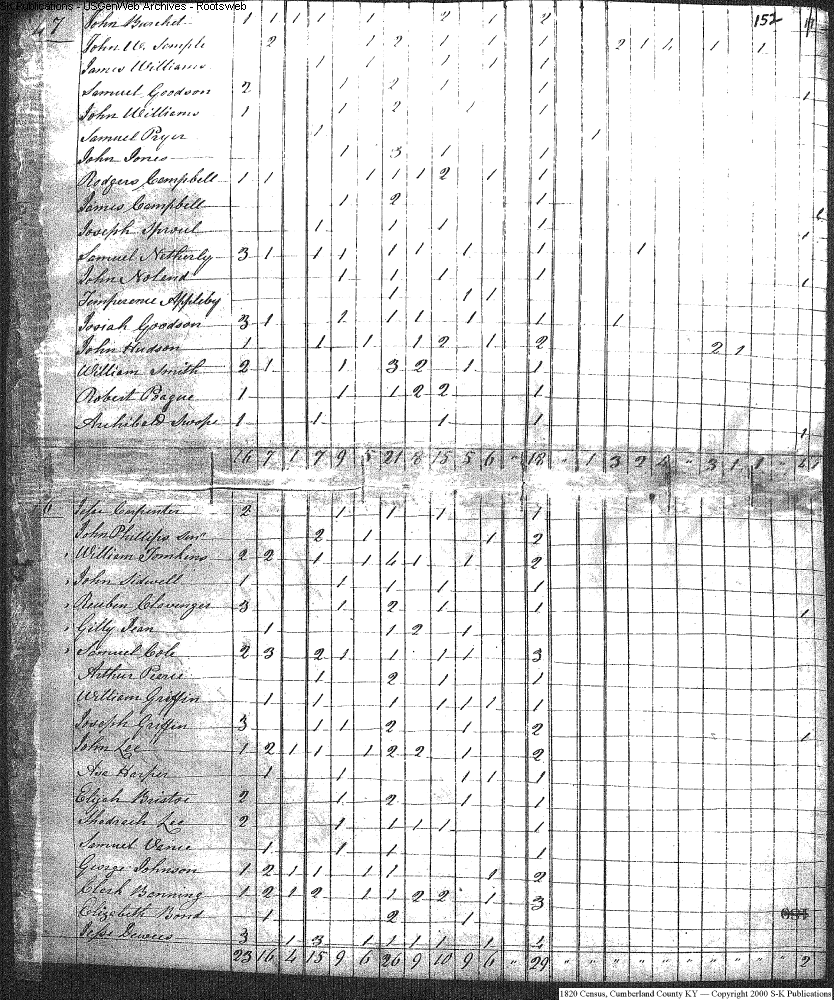 S-K Publications - USGenWeb Archives - Rootsweb
152
47 John Burchet 1 1 1 1 1 2 1 2
John W. Semple 2 1 2 1 1 1 2 1 4 1 1
James Williams 1 1 1 1 1
Samuel Goodson 2 1 2 1 1
John Williams 1 1 2 1 1
Samuel Pryer 1 1
John Jones 1 3 1 1
Rodgers Campbell 1 1 1 1 1 2 1 1
James Campbell 1 2 1
Joseph Sproul 1 1 1 1
Samuel Netherly 3 1 1 1 1 1 1 1 1
John Noland 1 1 1 1
Temperence Appleby 1 1 1
Josiah Goodson 3 1 1 1 1 1 1 1
John Hudson 1 1 1 1 2 1 2 2 1
William Smith 2 1 1 3 2 1 1
Robert Poague 1 1 1 2 2 1
Archibald Swope 1 1 1 1
16 7 1 7 9 5 21 8 15 5 6 " 18 " 1 3 2 4 " 3 1 1 "
Jesse Carpenter 2 1 1 1 1
John Phillips Senr 2 1 1 2
William Tomkins 2 2 1 1 4 1 1 2
John Sidwell 1 1 1 1 1
Reuben Clavenger 3 1 2 1 1
Gilly 1 1 2 1
Samuel Cole 2 3 2 1 1 1 1 3
Arthur 1 2 1 1
William Griffin 1 1 1 1 1 1 1
Joseph Griffin 3 1 1 2 1 2
John Lee 1 2 1 1 1 2 2 1 2
Asa Harper 1 1 1 1 1
Elijah Bristoe 2 1 2 1 1
Shadrach Lee 2 1 1 1 1 1
Samuel Vance 1 1 1 1
George Johnson 1 2 1 1 1 1 1 2
Clerk Benning 1 2 1 2 1 1 2 2 1 3
Elizabeth Bond 1 2 1
Jesse 3 1 3 1 1 1 1 1 4
23 16 4 15 9 6 26 9 10 9 6 " 29 " " " " " " " " " " 2
1820 Census, Cumberland County KY — Copyright 2000 S-K Publications